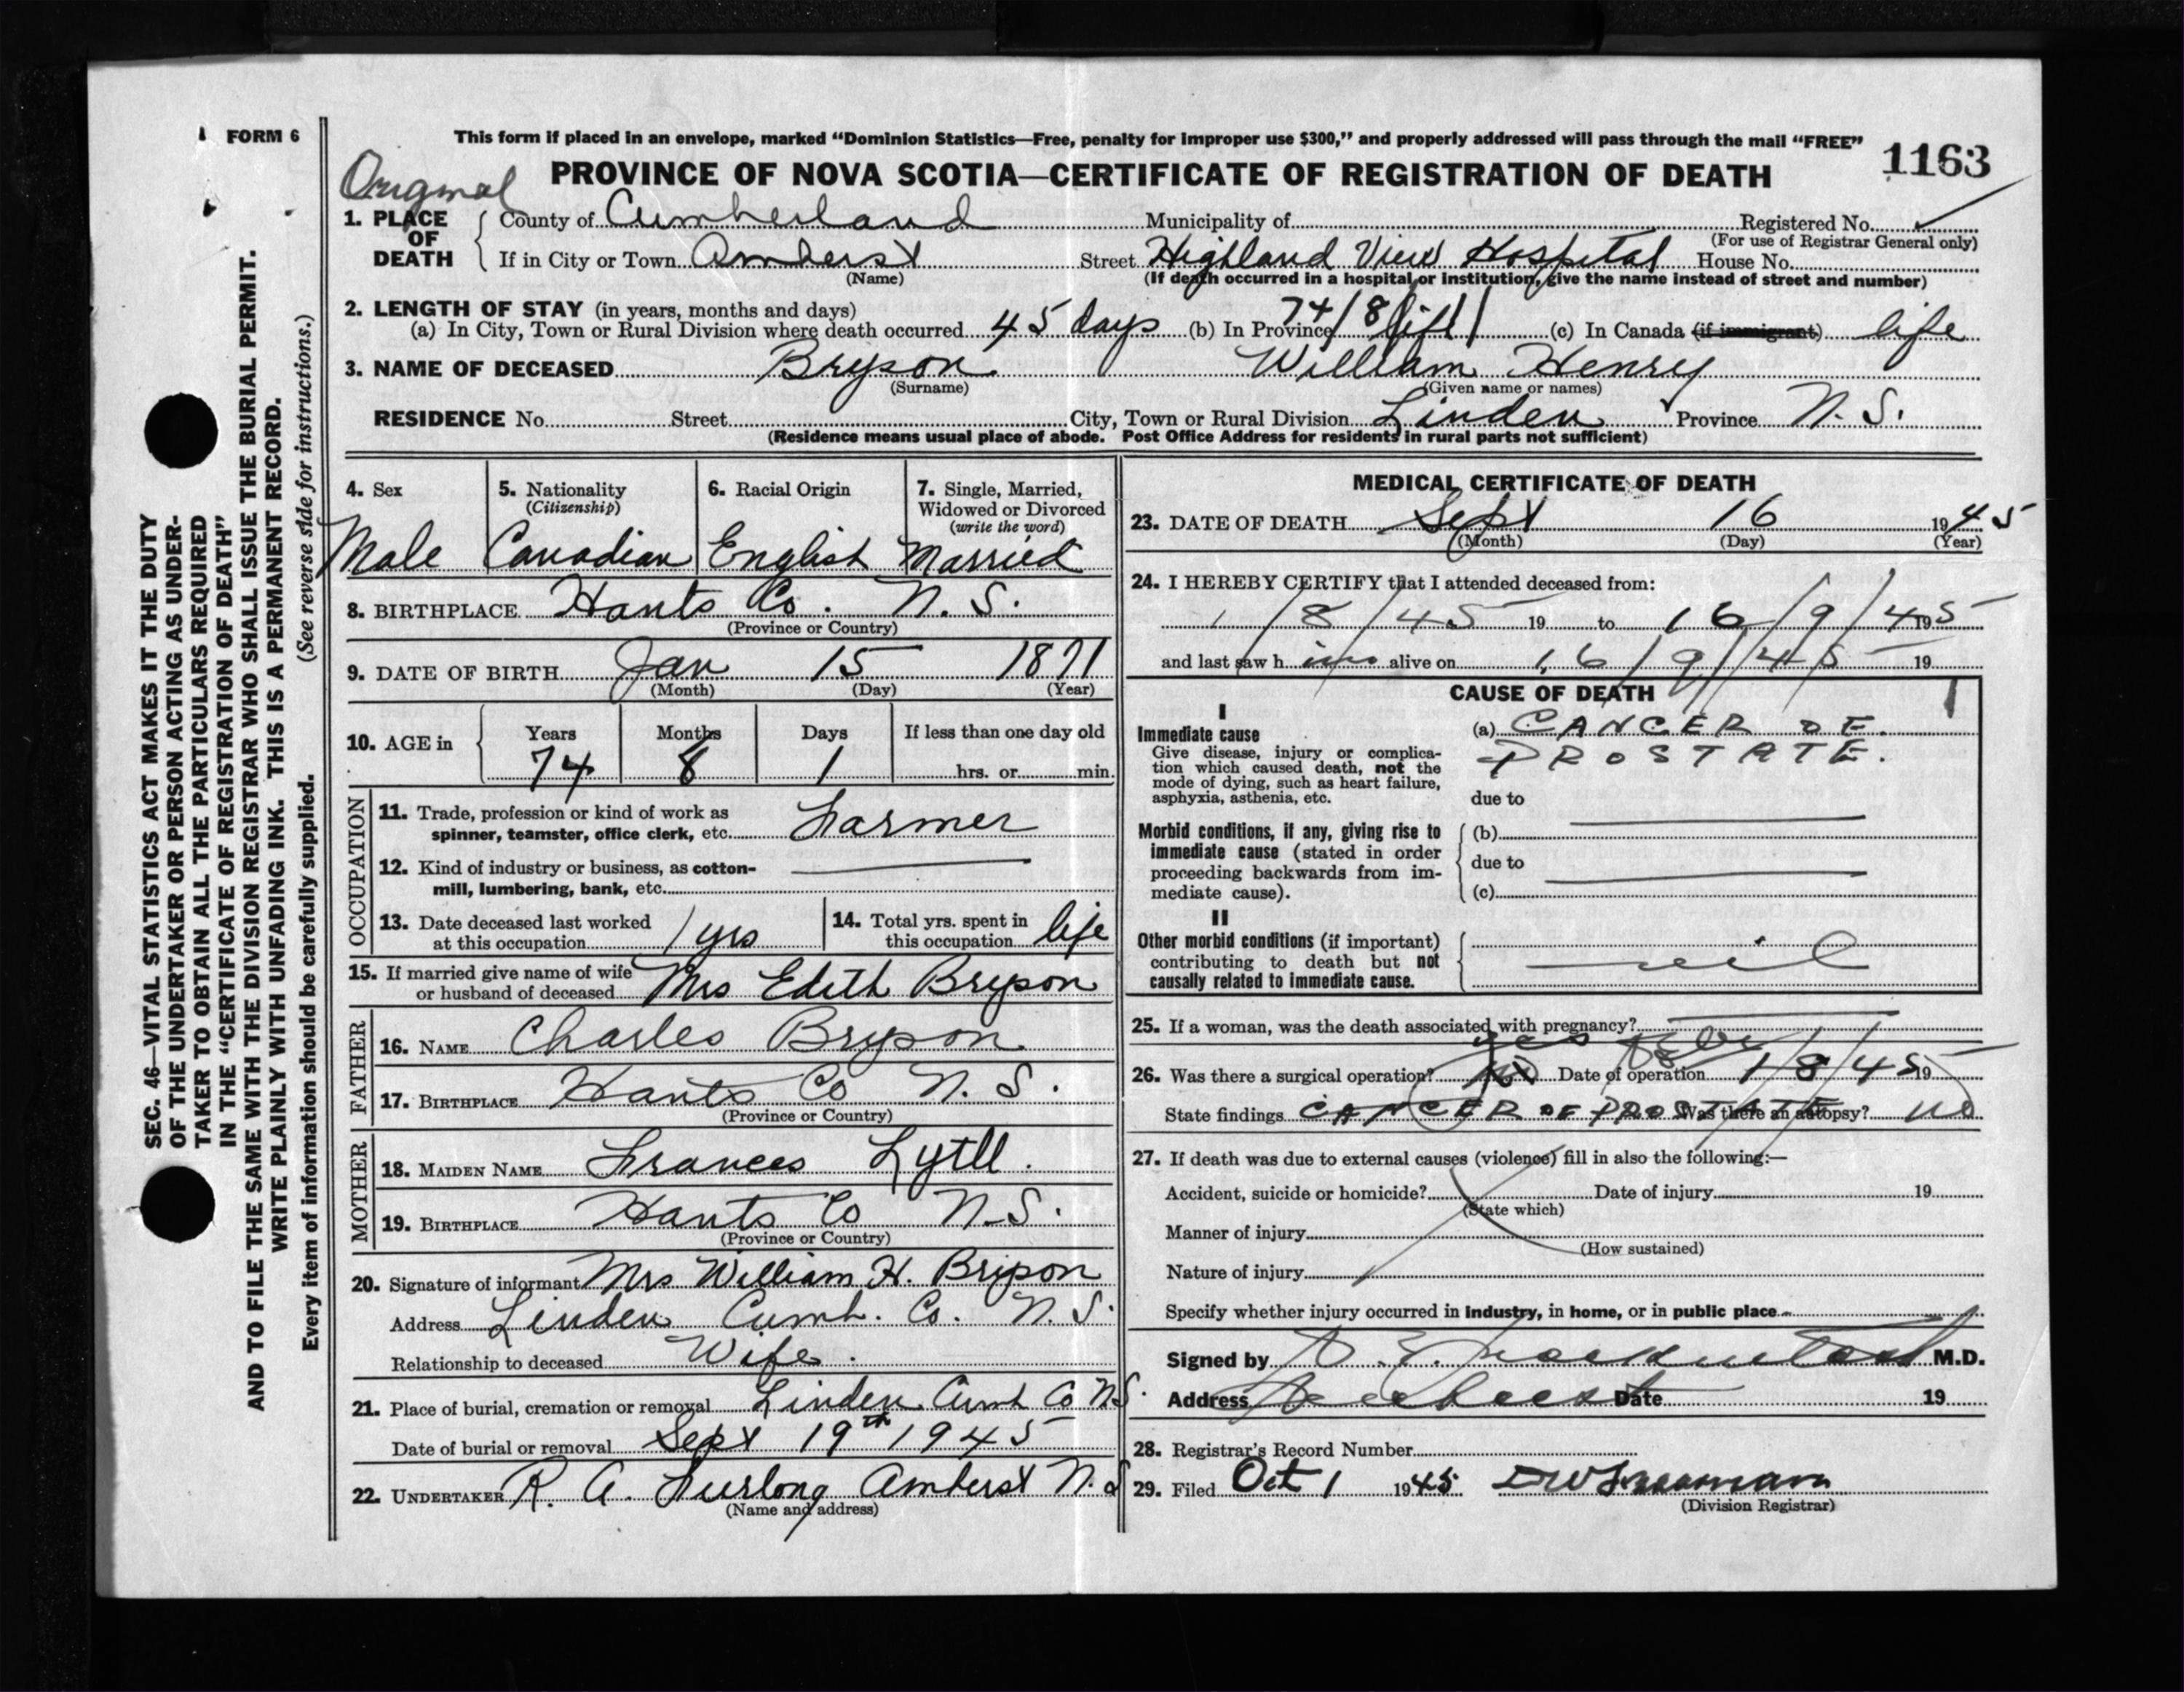 FORM 6
This form if placed in an envelope, marked “Dominion Statistics—Free, penalty for improper use $300,” and properly addressed will pass through the mail “FREE”
PROVINCE OF NOVA SCOTIA—CERTIFICATE OF REGISTRATION OF DEATH
1163
Original
1. PLACE OF DEATH
County of Cumberland Municipality of Registered No.
(For use of Registrar General only)
If in City or Town Amherst Street Highland View Hospital House No.
(Name) (If death occurred in a hospital or institution, give the name instead of street and number)
2. LENGTH OF STAY (in years, months and days)
(a) In City, Town or Rural Division where death occurred 45 days (b) In Province 74/8/1 life (c) In Canada (if immigrant) life
3. NAME OF DECEASED Bryson William Henry
(Surname) (Given name or names)
RESIDENCE No. Street City, Town or Rural Division Linden Province N. S.
(Residence means usual place of abode. Post Office Address for residents in rural parts not sufficient)
4. Sex 5. Nationality 6. Racial Origin 7. Single, Married,
(Citizenship) Widowed or Divorced
(write the word)
Male Canadian English Married
8. BIRTHPLACE Hants Co. N. S.
(Province or Country)
9. DATE OF BIRTH Jan 15 1871
(Month) (Day) (Year)
10. AGE in Years Months Days If less than one day old
74 8 1 hrs. or min.
OCCUPATION
11. Trade, profession or kind of work as
spinner, teamster, office clerk, etc. Farmer
12. Kind of industry or business, as cotton-
mill, lumbering, bank, etc.
13. Date deceased last worked
at this occupation 1 yrs
14. Total yrs. spent in
this occupation life
15. If married give name of wife
or husband of deceased Mrs Edith Bryson
FATHER
16. NAME Charles Bryson
17. BIRTHPLACE Hants Co N. S.
(Province or Country)
MOTHER
18. MAIDEN NAME Frances Lytll.
19. BIRTHPLACE Hants Co N.S.
(Province or Country)
20. Signature of informant Mrs William H. Bryson
Address Linden Cumb. Co. N. S.
Relationship to deceased Wife.
21. Place of burial, cremation or removal Linden Cumb Co N.S.
Date of burial or removal Sept 19th 1945
22. UNDERTAKER R. A. Furlong Amherst N. S
(Name and address)
MEDICAL CERTIFICATE OF DEATH
23. DATE OF DEATH Sept 16 1945
(Month) (Day) (Year)
24. I HEREBY CERTIFY that I attended deceased from:
1/8/45 19 to 16/9/45 19
and last saw h im alive on 16/9/45 19
CAUSE OF DEATH
I
Immediate cause
Give disease, injury or complica-
tion which caused death, not the
mode of dying, such as heart failure,
asphyxia, asthenia, etc.
(a) CANCER OF.
PROSTATE.
due to
Morbid conditions, if any, giving rise to
immediate cause (stated in order
proceeding backwards from im-
mediate cause).
(b)
due to
(c)
II
Other morbid conditions (if important)
contributing to death but not
causally related to immediate cause.
nil
25. If a woman, was the death associated with pregnancy?
yes
26. Was there a surgical operation? Date of operation 1/8/45 19
State findings CANCER OF PROSTATE Was there an autopsy? no
27. If death was due to external causes (violence) fill in also the following:—
Accident, suicide or homicide? Date of injury 19
(State which)
Manner of injury
(How sustained)
Nature of injury
Specify whether injury occurred in industry, in home, or in public place
Signed by M.D.
Address Amherst Date 19
28. Registrar's Record Number
29. Filed Oct 1 1945
(Division Registrar)
SEC. 46—VITAL STATISTICS ACT MAKES IT THE DUTY
OF THE UNDERTAKER OR PERSON ACTING AS UNDER-
TAKER TO OBTAIN ALL THE PARTICULARS REQUIRED
IN THE “CERTIFICATE OF REGISTRATION OF DEATH”
AND TO FILE THE SAME WITH THE DIVISION REGISTRAR WHO SHALL ISSUE THE BURIAL PERMIT.
WRITE PLAINLY WITH UNFADING INK. THIS IS A PERMANENT RECORD.
Every item of information should be carefully supplied. (See reverse side for instructions.)